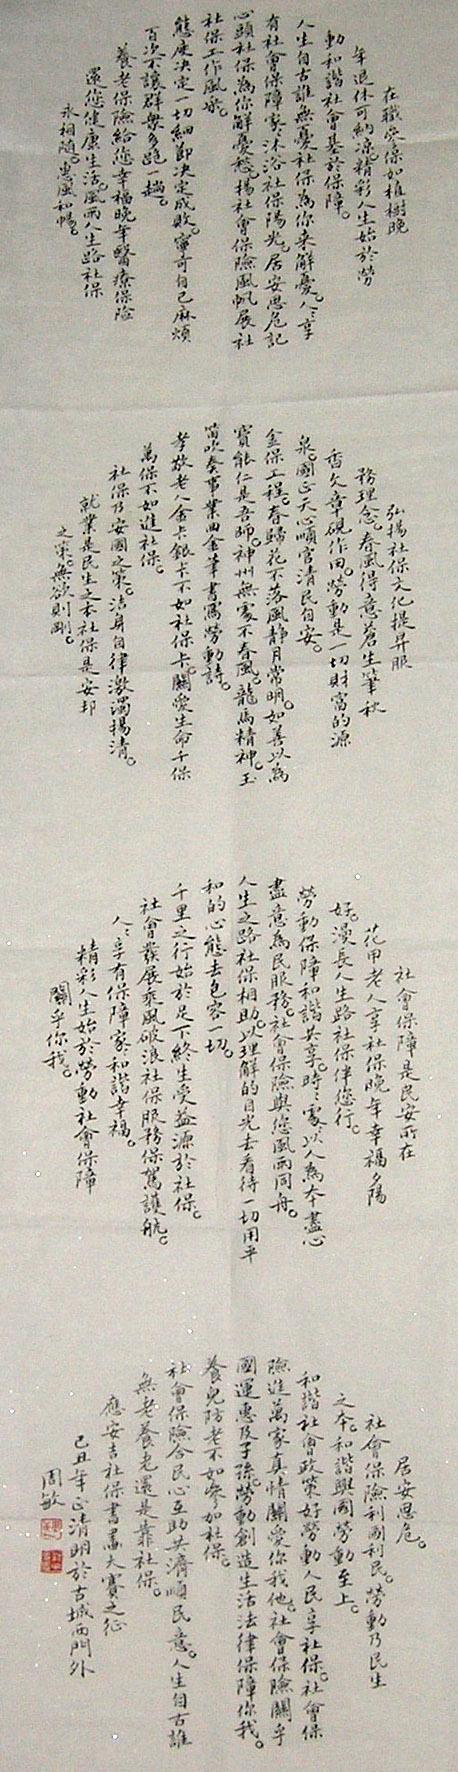 在職參保如植樹晚
年退休可納涼。精彩人生始於勞
動和諧社會基於保障。
人生自古誰無憂社保為你來解憂。人人享
有社會保障家家沐浴社保陽光。居安思危記
心頭社保為你解憂愁。揚社會保險風帆展社
社保工作風采。
態度決定一切細節決定成敗。寧可自己麻煩
百次不讓群眾多跑一趟。
養老保險給您幸福晚年醫療保險
還您健康生活。風雨人生路社保
永相隨。惠風和暢。
弘揚社保文化提昇服
務理念。春風得意蒼生筆秋
香文章硯作田。勞動是一切財富的源
泉。國正天心順官清民自安。
金保工程。春歸花不落風靜月常明。如善以為
寶能仁是吾師。神州無處不春風。龍馬精神。玉
笛吹奏事業曲金筆書寫勞動詩。
孝敬老人金卡銀卡不如社保卡。關愛生命千保
萬保不如進社保。
社保乃安國之策。潔身自律激濁揚清。
就業是民生之本社保是安邦
之策。無欲則剛。
社會保障是民安所在
花甲老人享社保晚年幸福夕陽
好。漫長人生路社保伴您行。
勞動保障和諧共享。時時處處以人為本盡心
盡意為民服務。社會保險與您風雨同舟。
人生之路社保相助。以理解的目光去看待一切用平
和的心態去包容一切。
千里之行始於足下終生受益源於社保。
社會發展乘風破浪社保服務保駕護航。
人人享有保障家家和諧幸福。
精彩人生始於勞動社會保障
關乎你我。
居安思危。
社會保險利國利民。勞動乃民生
之本。和諧興國勞動至上。
和諧社會政策好勞動人民享社保。社會保
險進萬家真情關愛你我他。社會保險關乎
國運惠及子孫。勞動創造生活法律保障你我。
養兒防老不如參加社保。
社會保險合民心互助共濟順民意。人生自古誰
無老養老還是靠社保。
應安吉社保書畫大賽之征
己丑年正清明於古城西門外
周敏